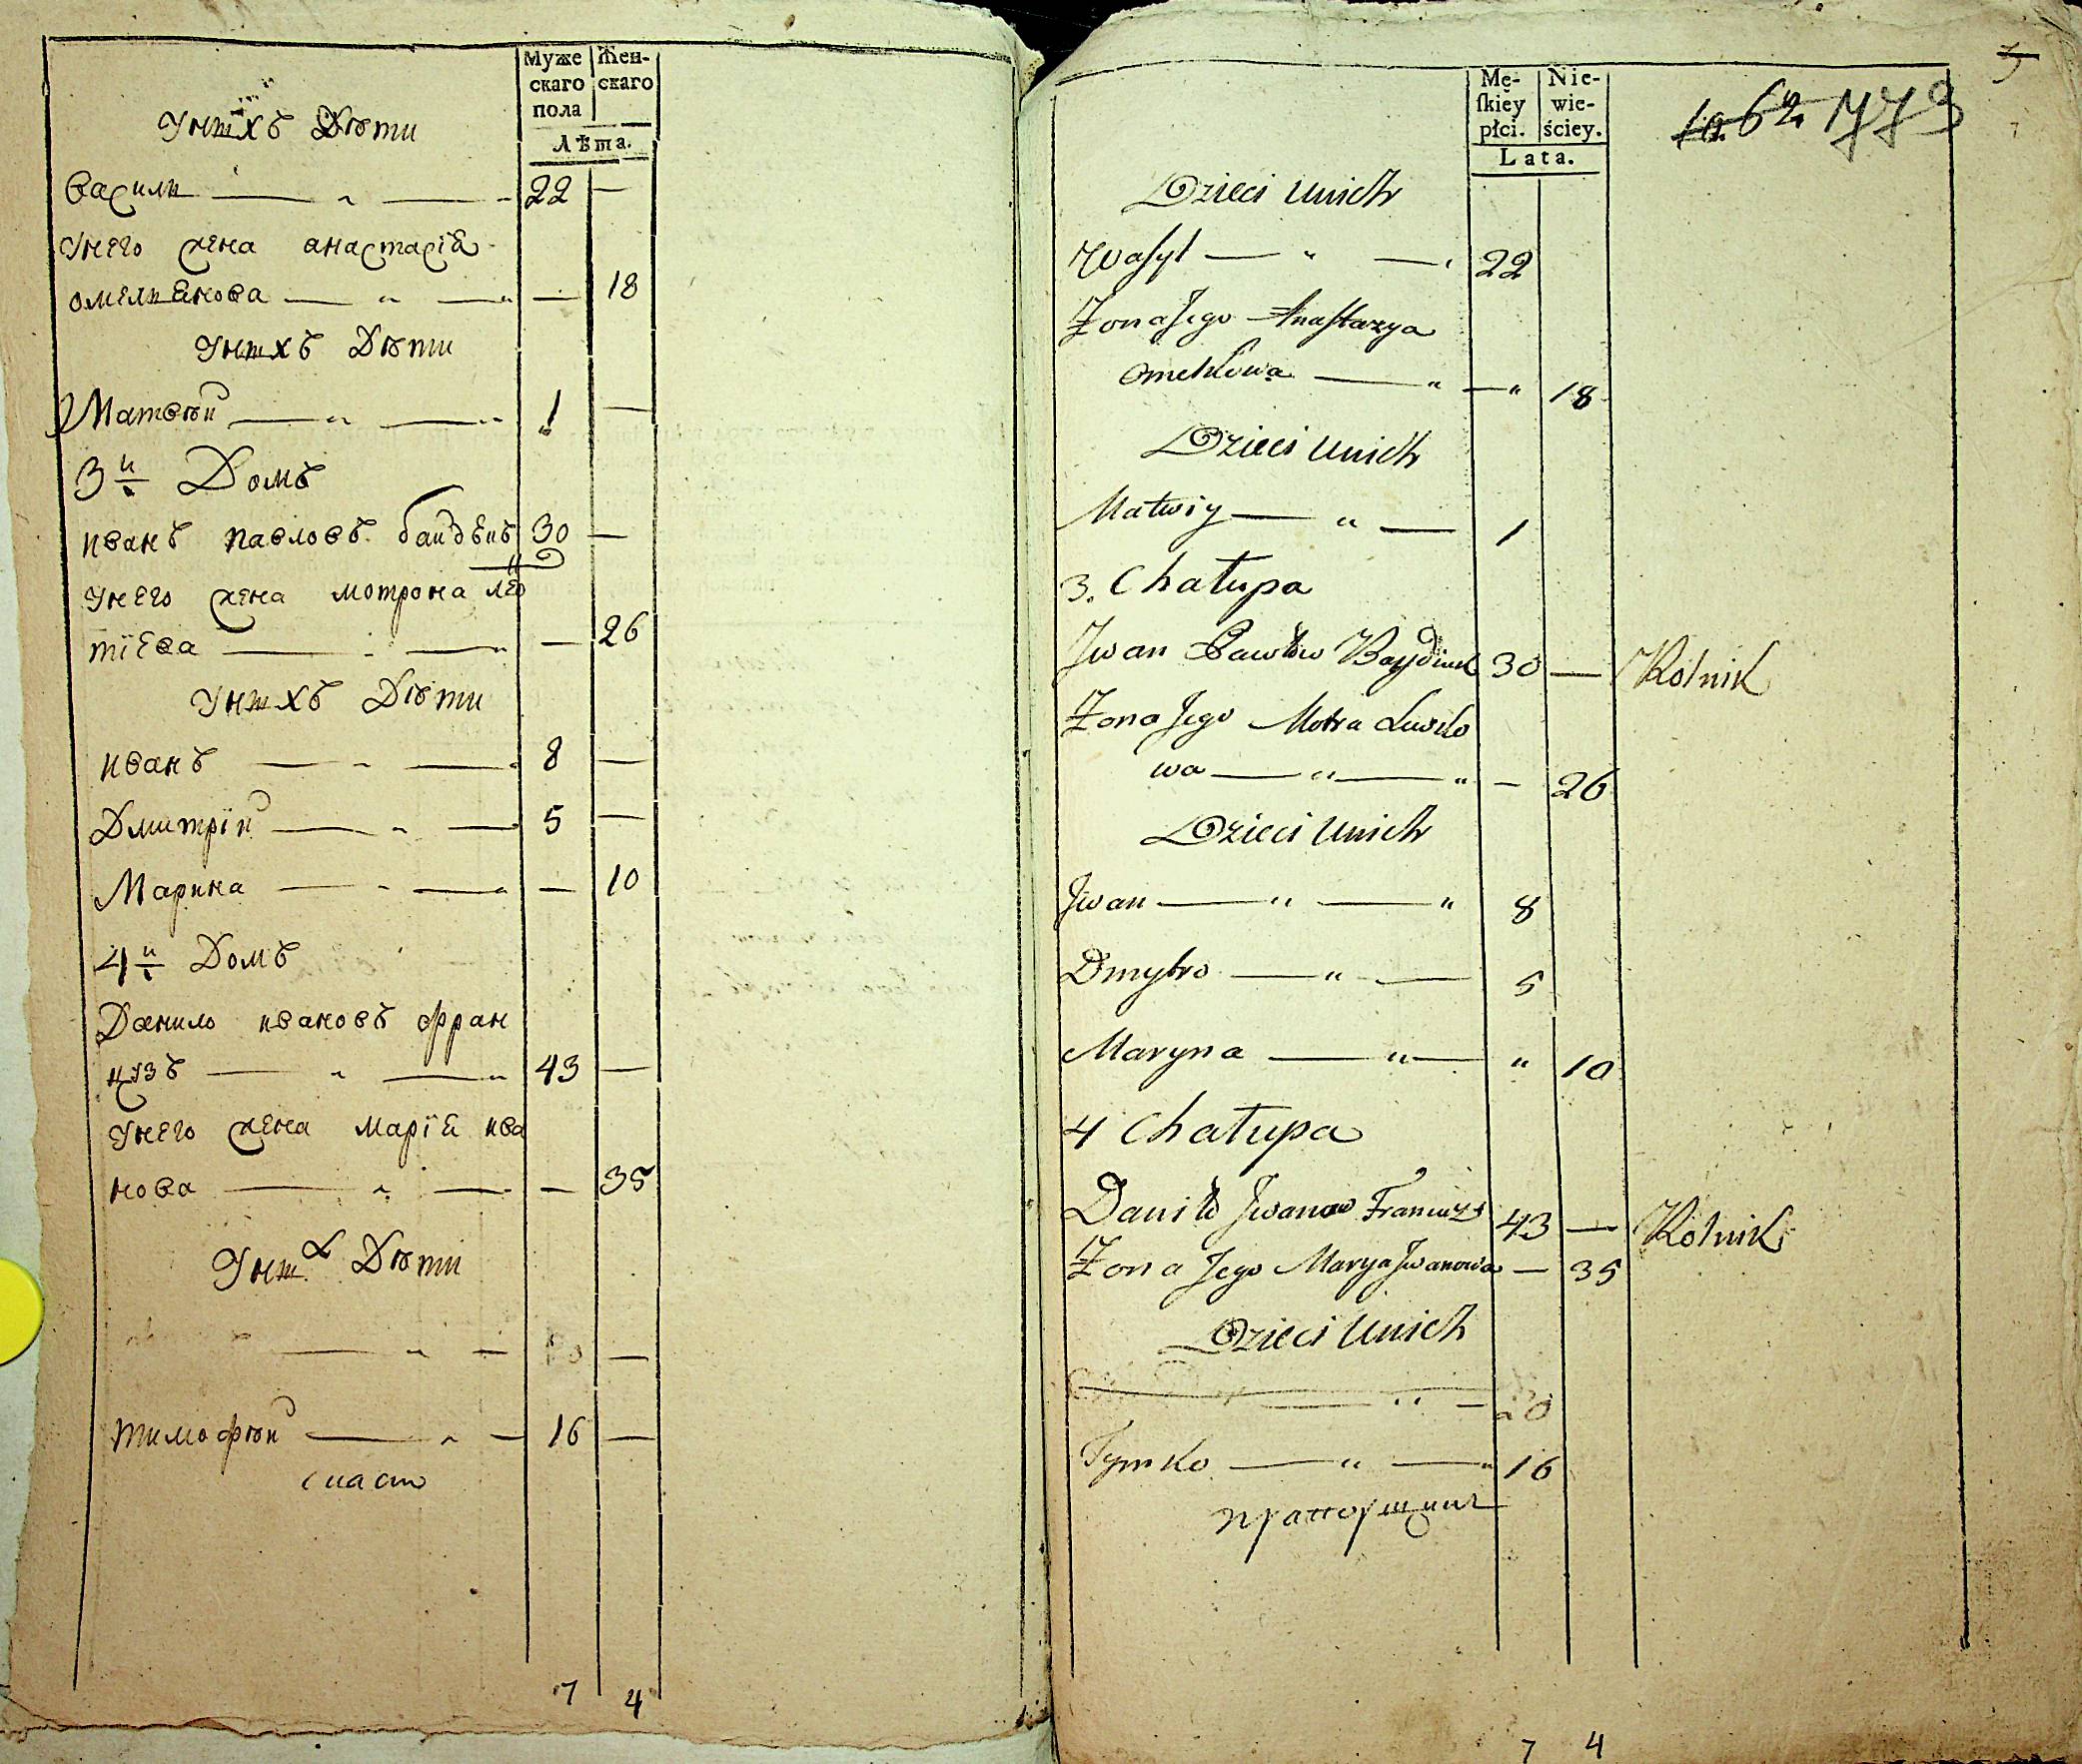 Муже
скаго
пола
Жен-
скаго
Лѣта.
Унихъ Дѣти
Василь — „ — 22 —
Унего жена анастасія
омельянова — „ — — 18
Унихъ Дѣти
Матвѣй — „ — 1 —
3й Домъ
иванъ павловъ 30 —
Унего жена мотрона лео
тіева — „ — — 26
Унихъ Дѣти
иванъ — „ — 8 —
Дмитрій — „ — 5 —
Марина — „ — — 10
4й Домъ
Данило ивановъ фран
цузъ — „ — 43 —
Унего жена марія ива
нова — „ — — 35
Уних Дѣти
— „ — —
тимофѣй — „ — 16 —
7 4
5
62 773
Mę-
ſkiey
płci.
Nie-
wie-
ściey.
Lata.
Dzieci Unich
Waſyl — „ — 22
Żona Jego Anaſtazya
Omelkowa — „ — „ 18
Dzieci Unich
Matwiy — „ — 1
3. Chałupa
Jwan Pawłow Baydiuk 30 — Rolnik
Żona Jego Motra
wa — „ — „ — 26
Dzieci Unich
Jwan — „ — „ 8
Dmytro — „ — 5
Maryna — „ — „ 10
4 Chałupa
Daniło Jwanow Francuzs 43 — Rolnik
Żona Jego Marya Jwanowa — 35
Dzieci Unich
— „ — 20
Tymko — „ — „ 16
7 4